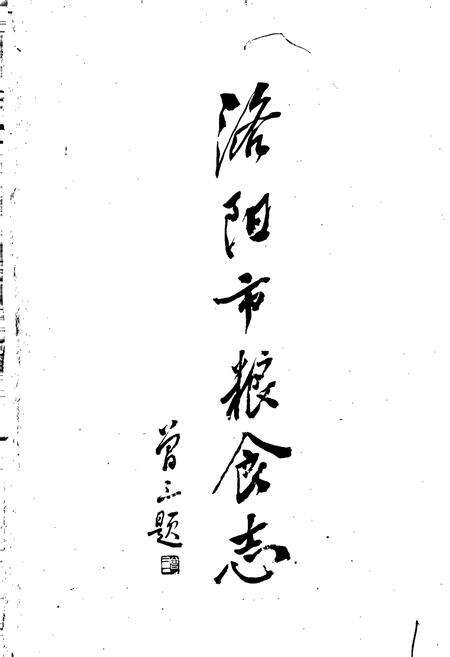 洛阳市粮食志
曾三题